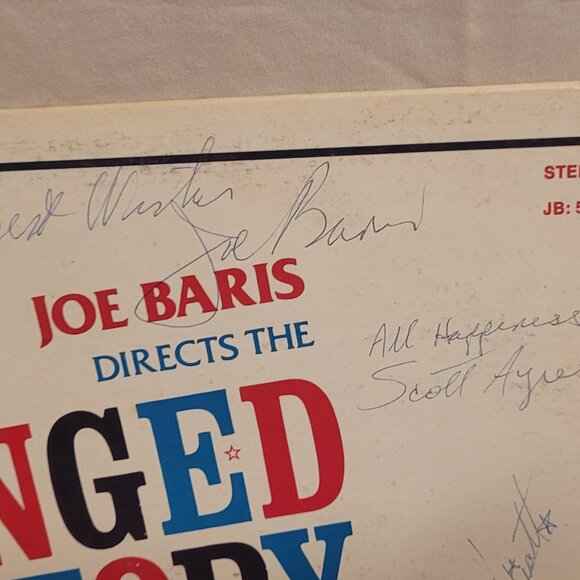 Best Wishes Joe Baris
STE
JB: 5
JOE BARIS
DIRECTS THE
All Happiness
Scott Ayre
NGED
ORY